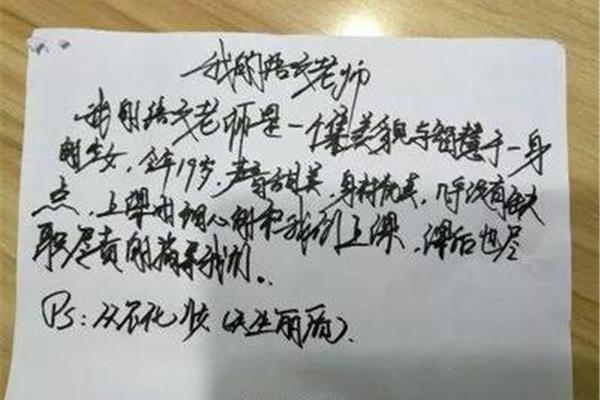 我的语文老师
我的语文老师是一个集美貌与智慧于一身
的少女，今年19岁，声音甜美，身材优美，几乎没有缺
点，上课时细心的和我们上课，课后也尽
职尽责的辅导我们。
PS：从不化妆（天生丽质）.